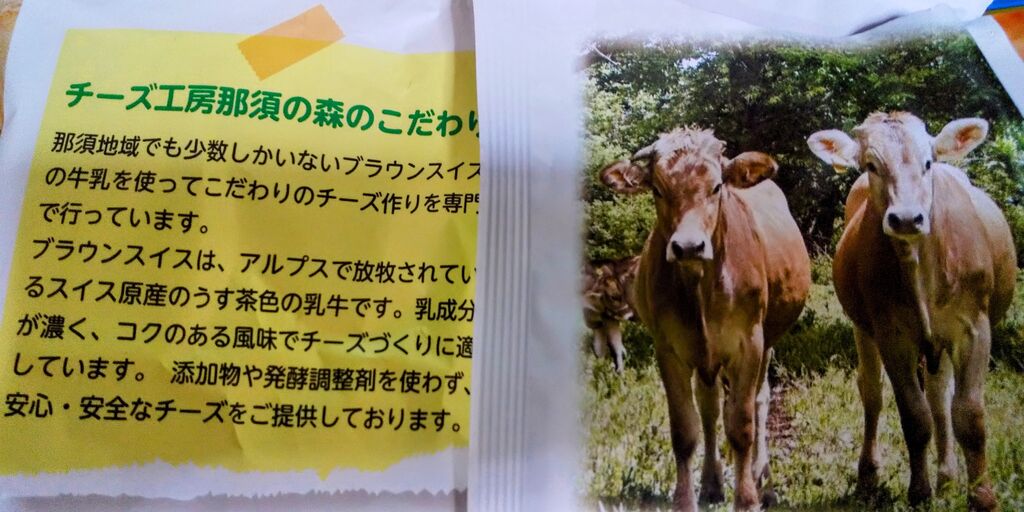 チーズ工房那須の森のこだわり
那須地域でも少数しかいないブラウンスイス
の牛乳を使ってこだわりのチーズ作りを専門
で行っています。
ブラウンスイスは、アルプスで放牧されてい
るスイス原産のうす茶色の乳牛です。乳成分
が濃く、コクのある風味でチーズづくりに適
しています。 添加物や発酵調整剤を使わず、
安心・安全なチーズをご提供しております。